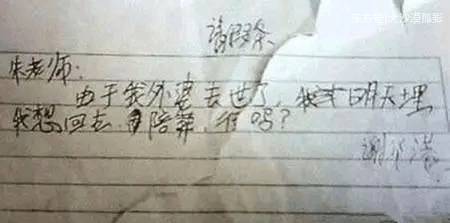 请假条
朱老师:
由于我外婆去世了,我明天埋
我想回去陪葬,行吗?
谢